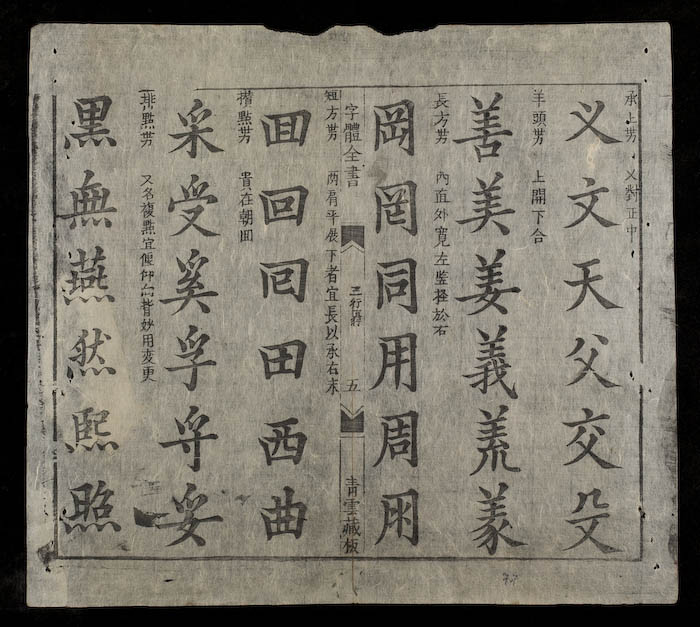 承上勢 乂對正中
义文天父交殳
羊頭勢 上開下合
善美姜義羗
長方勢 內直外寬左豎於右
岡罔同用周
字體全書 三行 五 青雲藏板
短方勢 兩肩平展下者宜長以承右末
囬回囘田西曲
攢點勢 貴在朝囬
采受奚孚寽妥
排點勢 又名複點宜偃仰向背妙用変更
黑無燕然熙照